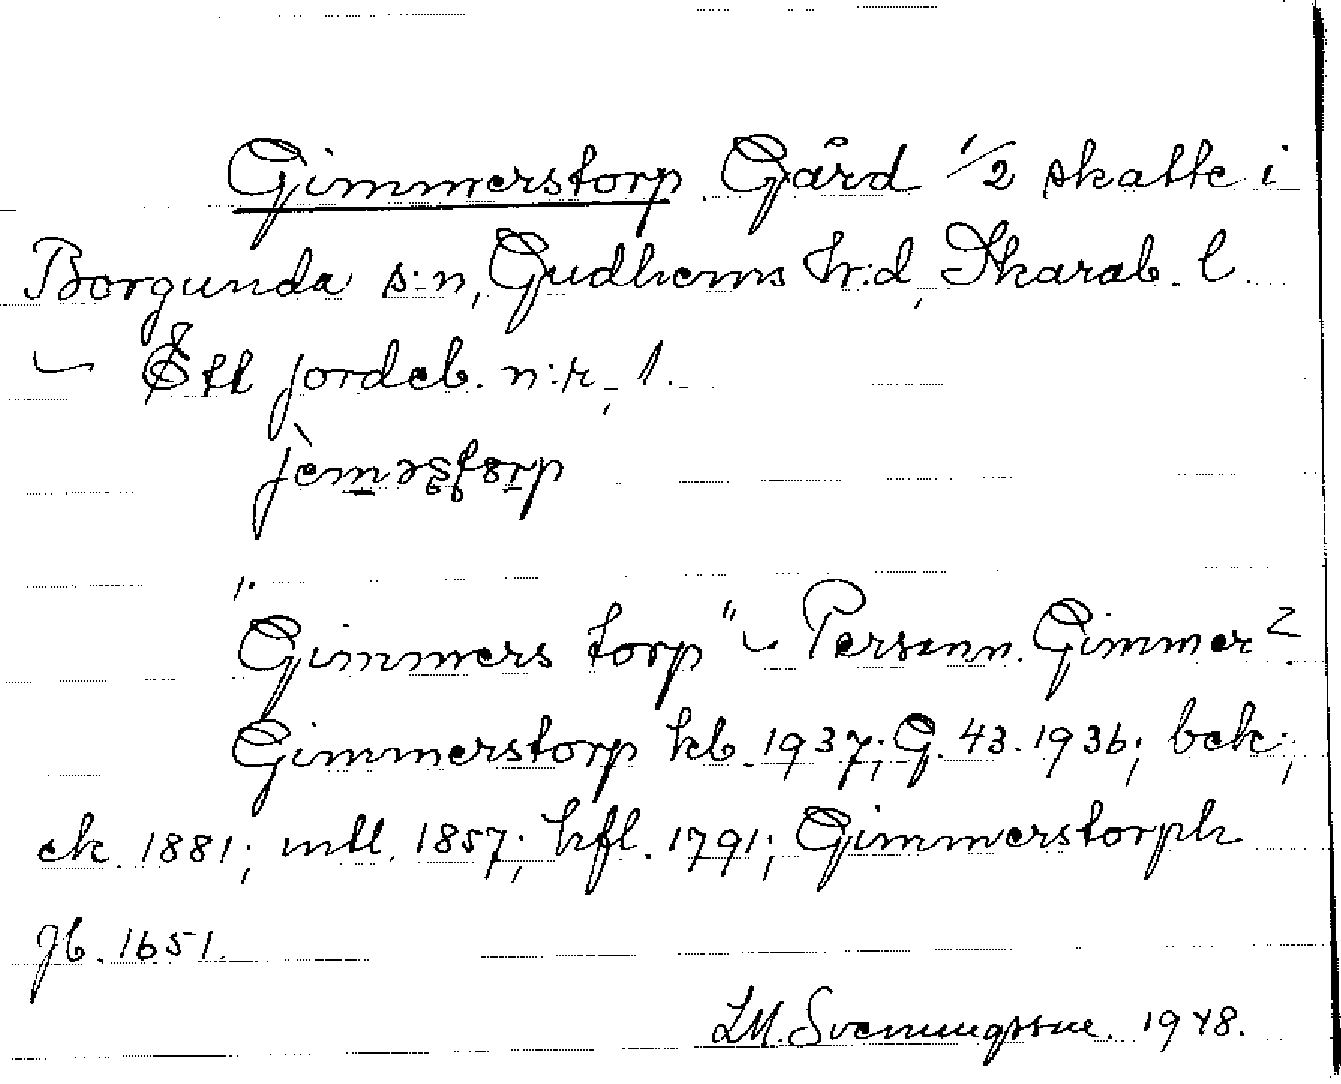 Gimmerstorp Gård 1/2 skatte i
Borgunda s:n, Gudhems hr:d, Skarab. l.
Ett jordeb. n:r, 1.
1.
"Gimmers torp" ~ Personn. Gimmer?
Gimmerstorp kb. 1937; G. 43. 1936; bek;
ek. 1881; mtl. 1857; hfl. 1791; Gimmerstorph
gb. 1651.
L.M. Svenungsson. 1948.